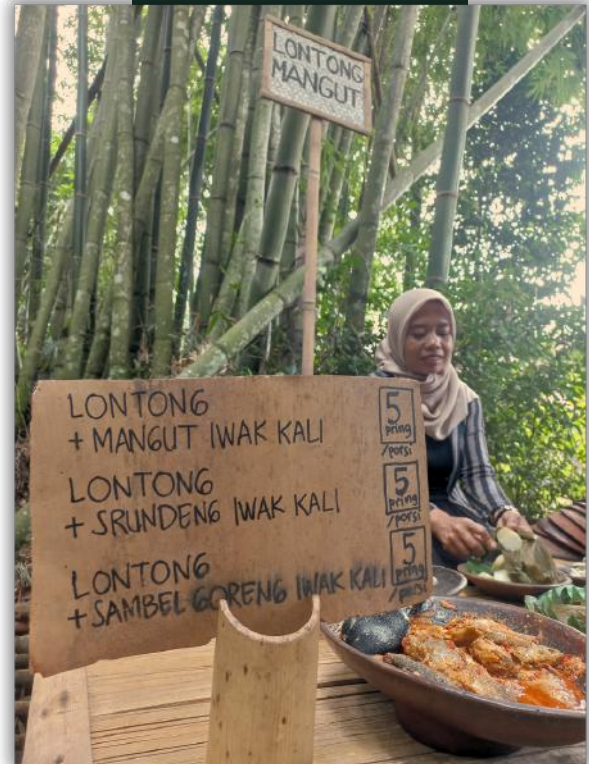 LONTONG
MANGUT
LONTONG
+ MANGUT IWAK KALI
5
pring
/porsi
LONTONG
+ SRUNDENG IWAK KALI
5
pring
/porsi
LONTONG
+ SAMBEL GORENG IWAK KALI
5
pring
/porsi